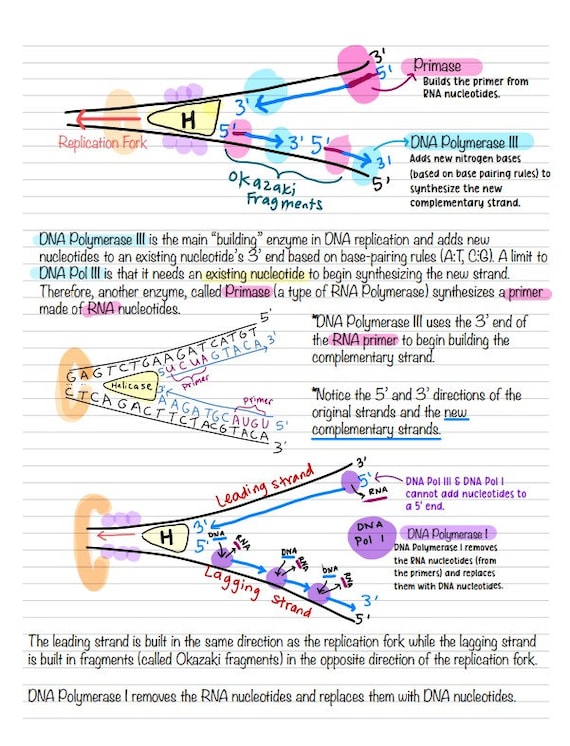 3'
5'
Primase
Builds the primer from
RNA nucleotides.
3'
H
Replication Fork
5'
3' 5'
3'
5'
Okazaki
Fragments
DNA Polymerase III
Adds new nitrogen bases
(based on base pairing rules) to
synthesize the new
complementary strand.
DNA Polymerase III is the main "building" enzyme in DNA replication and adds new
nucleotides to an existing nucleotide's 3' end based on base-pairing rules (A:T, C:G). A limit to
DNA Pol III is that it needs an existing nucleotide to begin synthesizing the new strand.
Therefore, another enzyme, called Primase (a type of RNA Polymerase) synthesizes a primer
made of RNA nucleotides.
5'
GAGTCTGAAGATCATGT
5' UCUAGTACA 3'
primer
Helicase
primer
3' AAGATGCAUGU 5'
CTCAGACTTCTACGTACA
3'
*DNA Polymerase III uses the 3' end of
the RNA primer to begin building the
complementary strand.
*Notice the 5' and 3' directions of the
original strands and the new
complementary strands.
Leading strand
3'
5'
RNA
DNA Pol III & DNA Pol I
cannot add nucleotides to
a 5' end.
H
3'
5'
DNA
RNA
DNA
RNA
DNA
RNA
Lagging strand
3'
5'
DNA
Pol I
DNA Polymerase I
DNA Polymerase I removes
the RNA nucleotides (from
the primers) and replaces
them with DNA nucleotides.
The leading strand is built in the same direction as the replication fork while the lagging strand
is built in fragments (called Okazaki fragments) in the opposite direction of the replication fork.
DNA Polymerase I removes the RNA nucleotides and replaces them with DNA nucleotides.